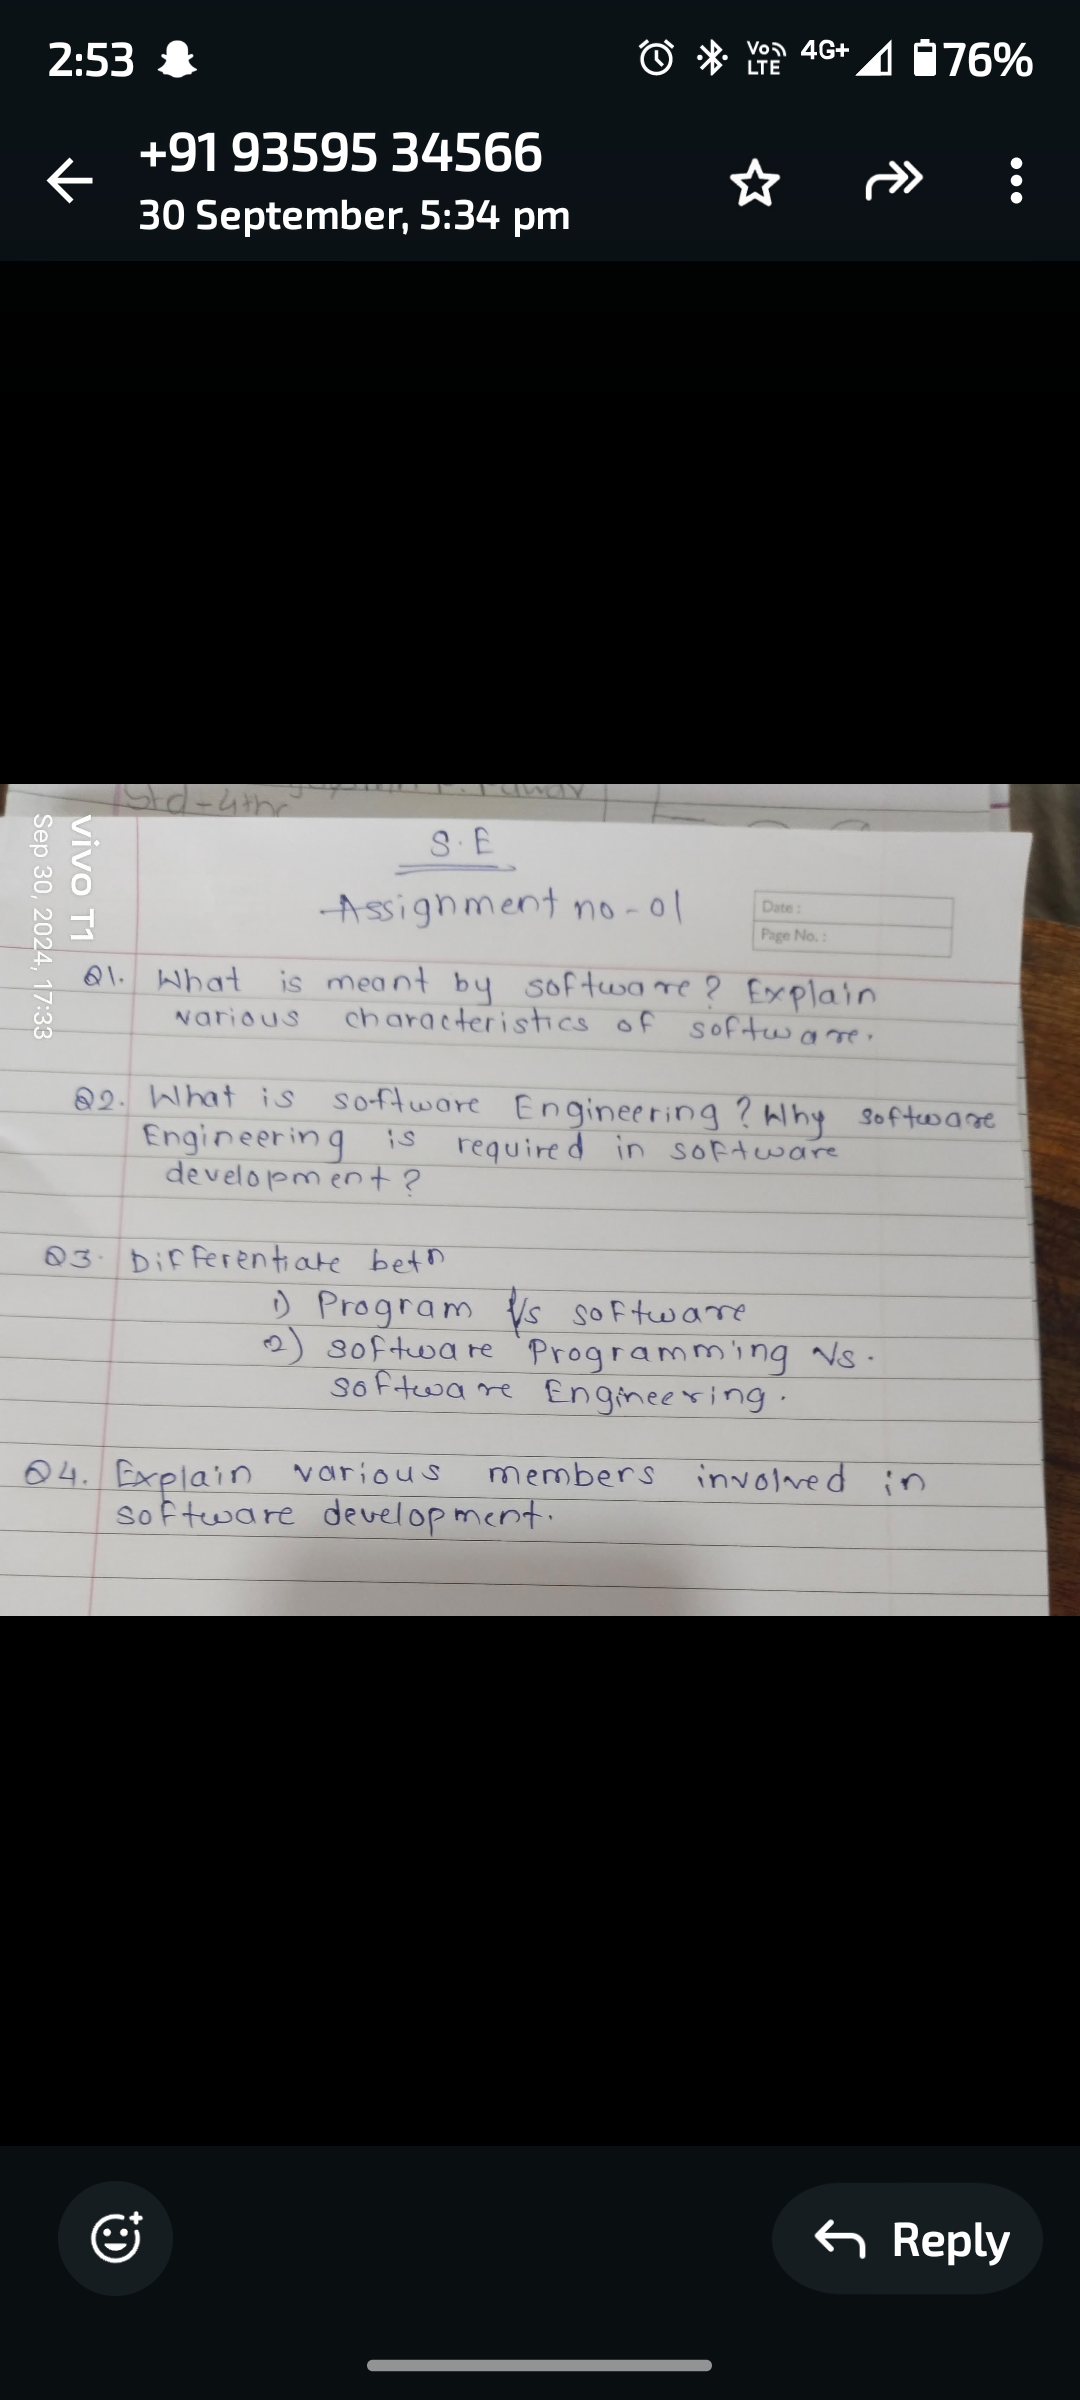 2:53
Vo LTE 4G+ 76%
+91 93595 34566
30 September, 5:34 pm
Std-4th
vivo T1
Sep 30, 2024, 17:33
S.E
Assignment no-01
Date :
Page No. :
Q1. What is meant by software? Explain
various characteristics of software.
Q2. What is software Engineering? Why software
Engineering is required in software
development?
Q3. Differentiate betn
1) Program V/s software
2) software Programming Vs.
software Engineering.
Q4. Explain various members involved in
software development.
Reply